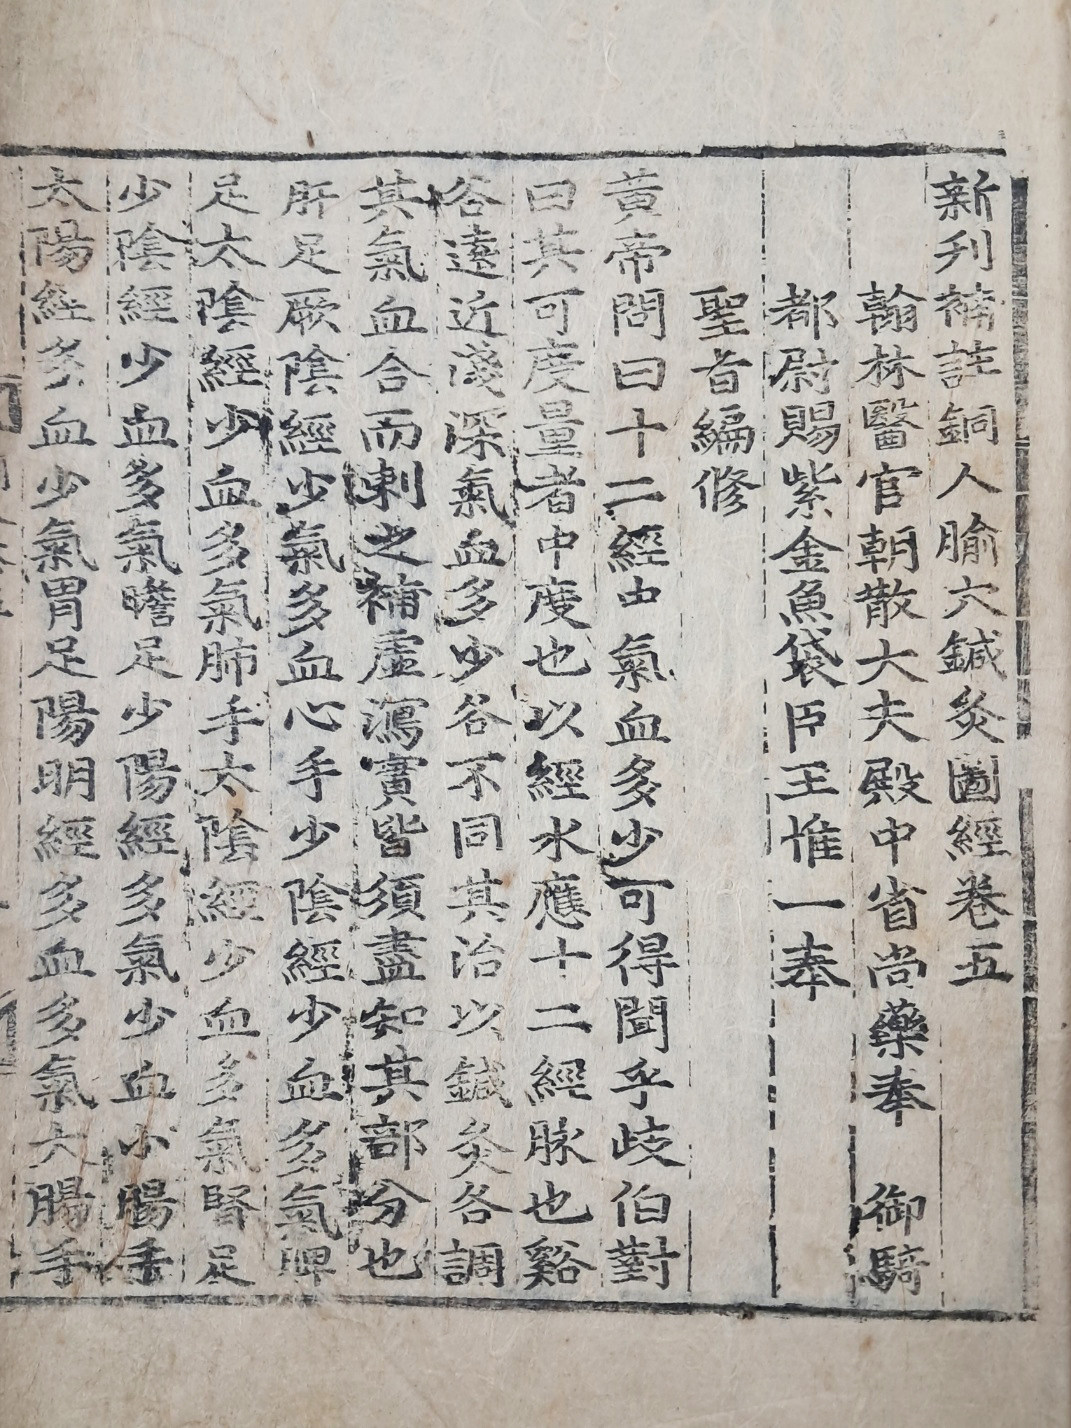 新刋補註銅人腧穴鍼灸圖經卷五
翰林醫官朝散大夫殿中省尚藥奉 御騎
都尉賜紫金魚袋臣王惟一奉
聖旨編修
黃帝問曰十二經中氣血多少可得聞乎岐伯對
曰其可度量者中度也以經水應十二經脉也谿
谷遠近淺深氣血多少各不同其治以鍼灸各調
其氣血合而刺之補虛瀉實皆須盡知其部分也
肝足厥陰經少氣多血心手少陰經少血多氣脾
足太陰經少血多氣肺手太陰經少血多氣腎足
少陰經少血多氣瞻足少陽經多氣少血小腸手
太陽經多血少氣胃足陽明經多血多氣大腸手